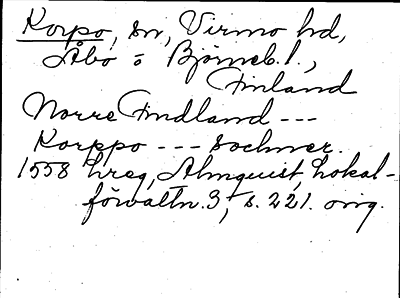 Korpo, sn, Virmo hd,
Åbo o Björneb. l.,
Finland
Norre Findland ---
Korppo --- sochner.
1558 hreg, Almquist, Lokal-
förvaltn. 3, s. 221. orig.